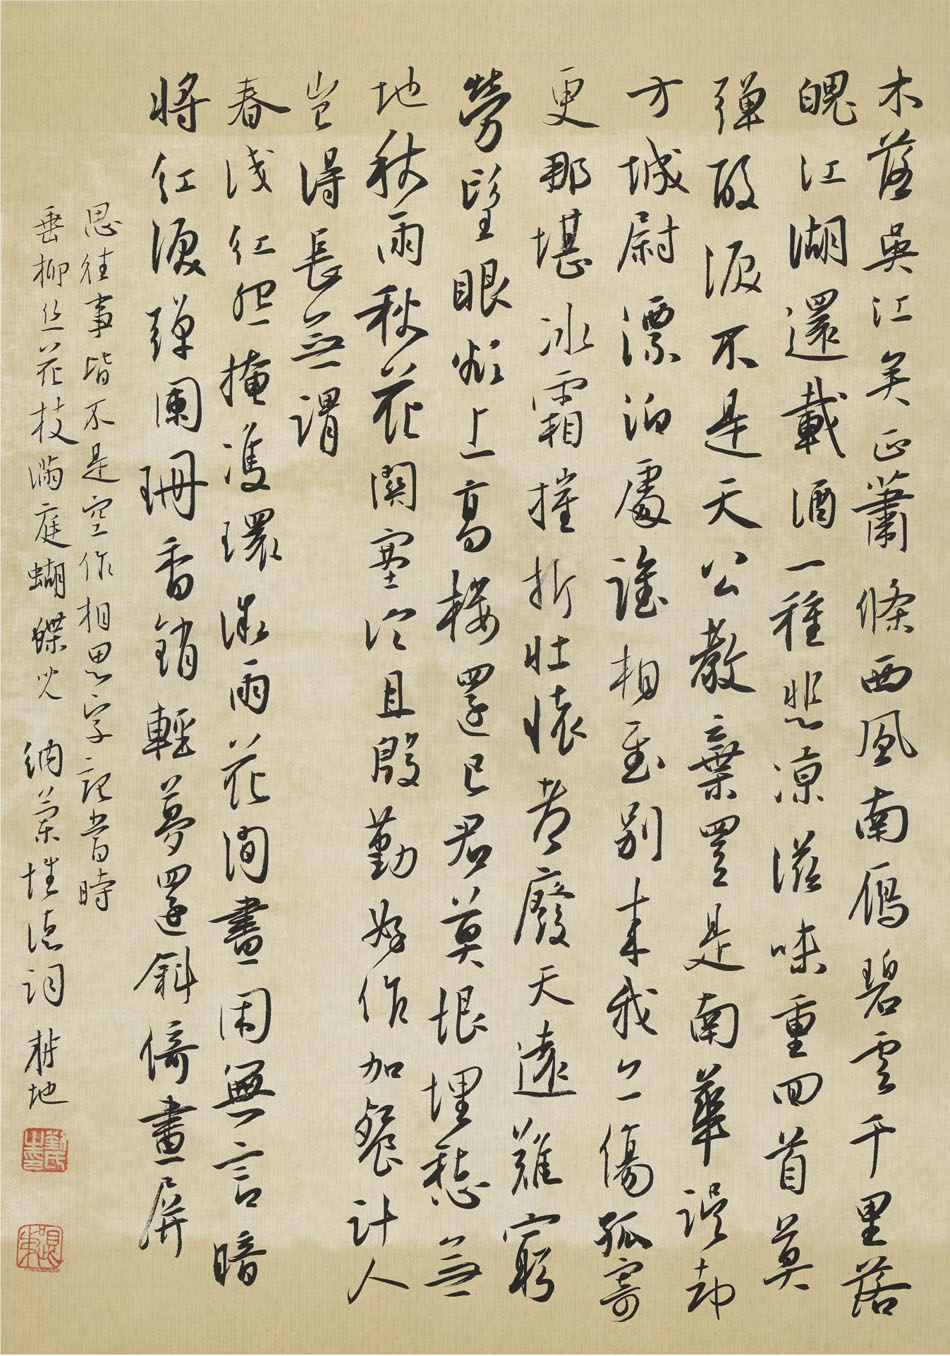 木落吳江矣正蕭條西風南鴈碧雲千里落
魄江湖還載酒一種悲凉滋味重回首莫
彈酸淚不是天公教棄置是南華誤却
方城尉漂泊處誰相慰別來我亦傷孤寄
更那堪冰霜摧折壯懷都廢天遠難窮
勞望眼欲上高樓還已君莫恨埋愁無
地秋雨秋花關塞冷且殷勤好作加餐計人
豈得長無謂
春淺紅怨掩雙環微雨花間晝閑無言暗
將紅淚彈闌珊香銷輕夢還斜倚畫屏
思往事皆不是空作相思字記當時
垂柳絲花枝滿庭蝴蝶兒 納蘭性德詞 耕地